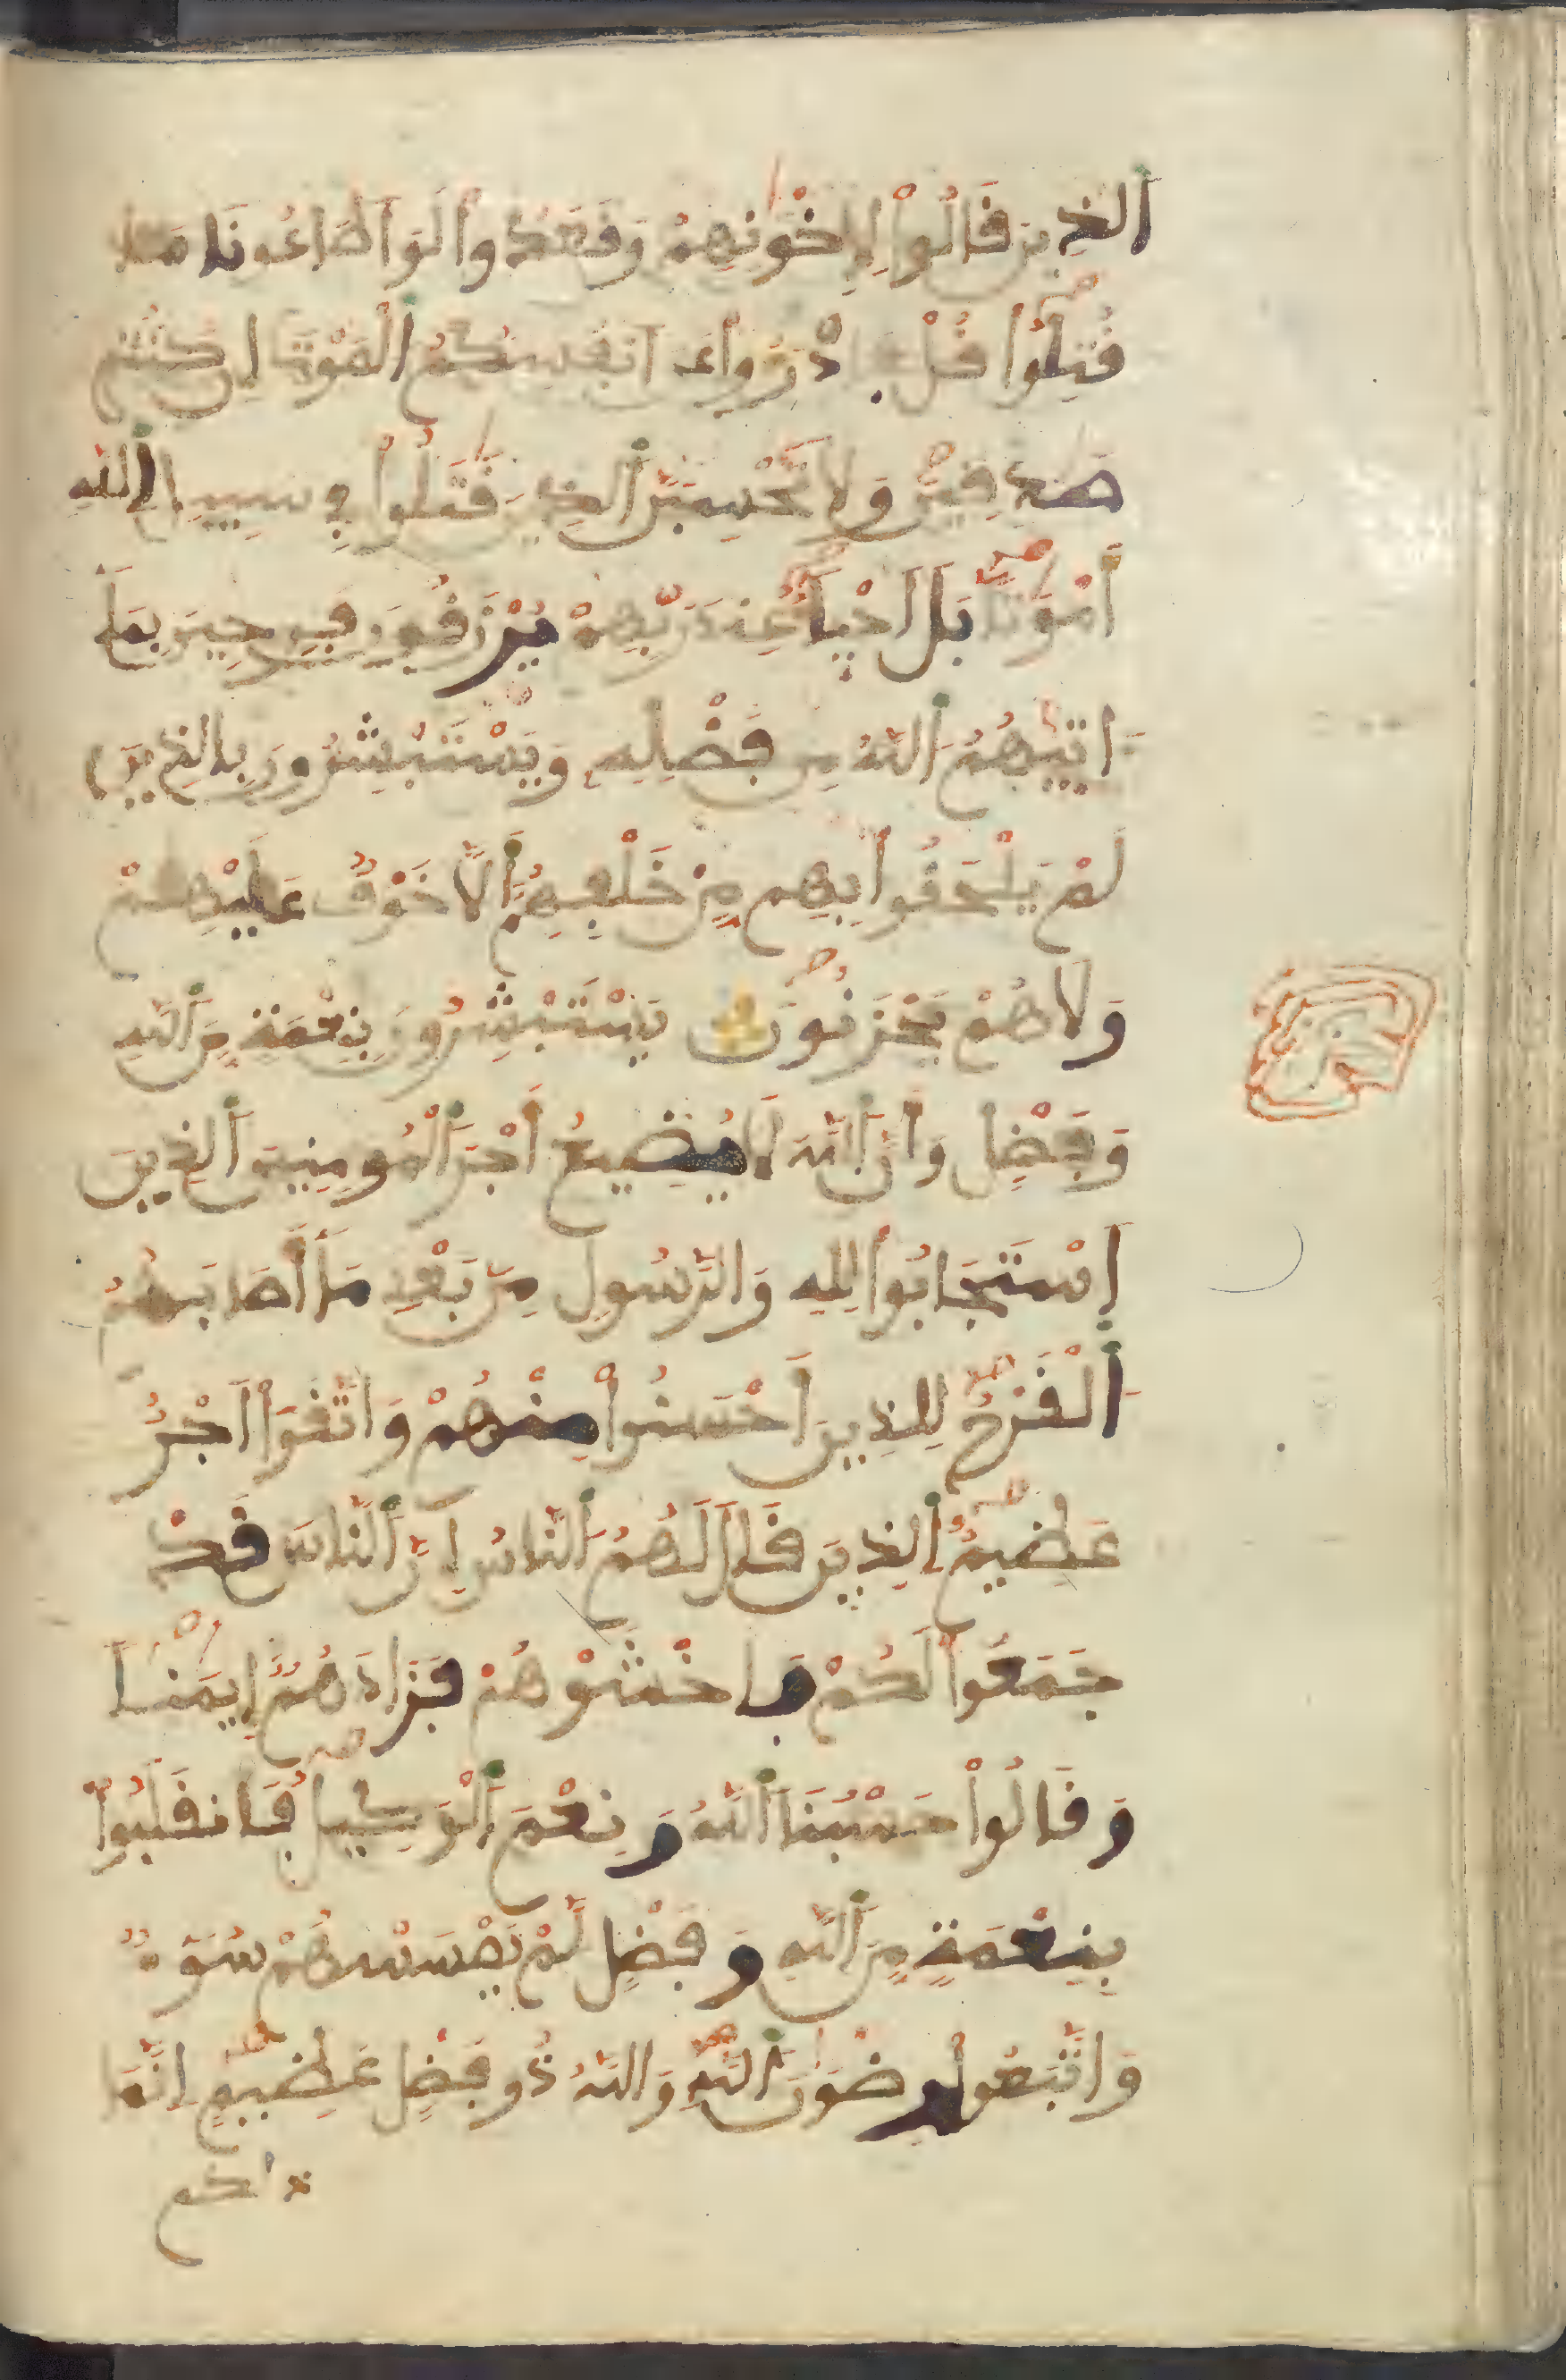 اَ۬لذِينَ قَالُواْ لِإِخْوَٰنِهِمْ وَقَعَدُواْ لَوَ اَطَاعُونَا مَا
قُتِلُواْ قُلْ فَادْرَءُواْ عَنَ اَنفُسِكُمُ اُ۬لْمَوْتَ إِن كُنتُمْ
صَٰدِقِينَ وَلَا تَحْسِبَنَّ اَ۬لذِينَ قُتِلُواْ فِے سَبِيلِ اِ۬للَّهِ
أَمْوَٰتاَۢ بَلَ اَحْيَآءٌ عِندَ رَبِّهِمْ يُرْزَقُونَ فَرِحِينَ بِمَآ
ءَاتَيٰهُمُ اُ۬للَّهُ مِن فَضْلِهِۦ وَيَسْتَبْشِرُونَ بِالذِينَ
لَمْ يَلْحَقُواْ بِهِم مِّنْ خَلْفِهِمُۥٓ أَلَّا خَوْفٌ عَلَيْهِمْ
وَلَا هُمْ يَحْزَنُونَ يَسْتَبْشِرُونَ بِنِعْمَةٍ مِّنَ اَ۬للَّهِ
وَفَضْلٍ وَأَنَّ اَ۬للَّهَ لَا يُضِيعُ أَجْرَ اَ۬لْمُومِنِينَ اَ۬لذِينَ
اَ۪سْتَجَابُواْ لِلهِ وَالرَّسُولِ مِنۢ بَعْدِ مَآ أَصَابَهُمُ
اُ۬لْقَرْحُ لِلذِينَ أَحْسَنُواْ مِنْهُمْ وَاتَّقَوَاْ اَجْرٌ
عَظِيمٌ اِ۬لذِينَ قَالَ لَهُمُ اُ۬لنَّاسُ إِنَّ اَ۬لنَّاسَ قَدْ
جَمَعُواْ لَكُمْ فَاخْشَوْهُمْ فَزَادَهُمُۥٓ إِيمَٰناً
وَقَالُواْ حَسْبُنَا اَ۬للَّهُ وَنِعْمَ اَ۬لْوَكِيلُ فَانقَلَبُواْ
بِنِعْمَةٍ مِّنَ اَ۬للَّهِ وَفَضْلٍ لَّمْ يَمْسَسْهُمْ سُوٓءٌ
وَاتَّبَعُواْ رِضْوَٰنَ اَ۬للَّهِ وَاللَّهُ ذُو فَضْلٍ عَظِيمٍ اِنَّمَا
ذالكم